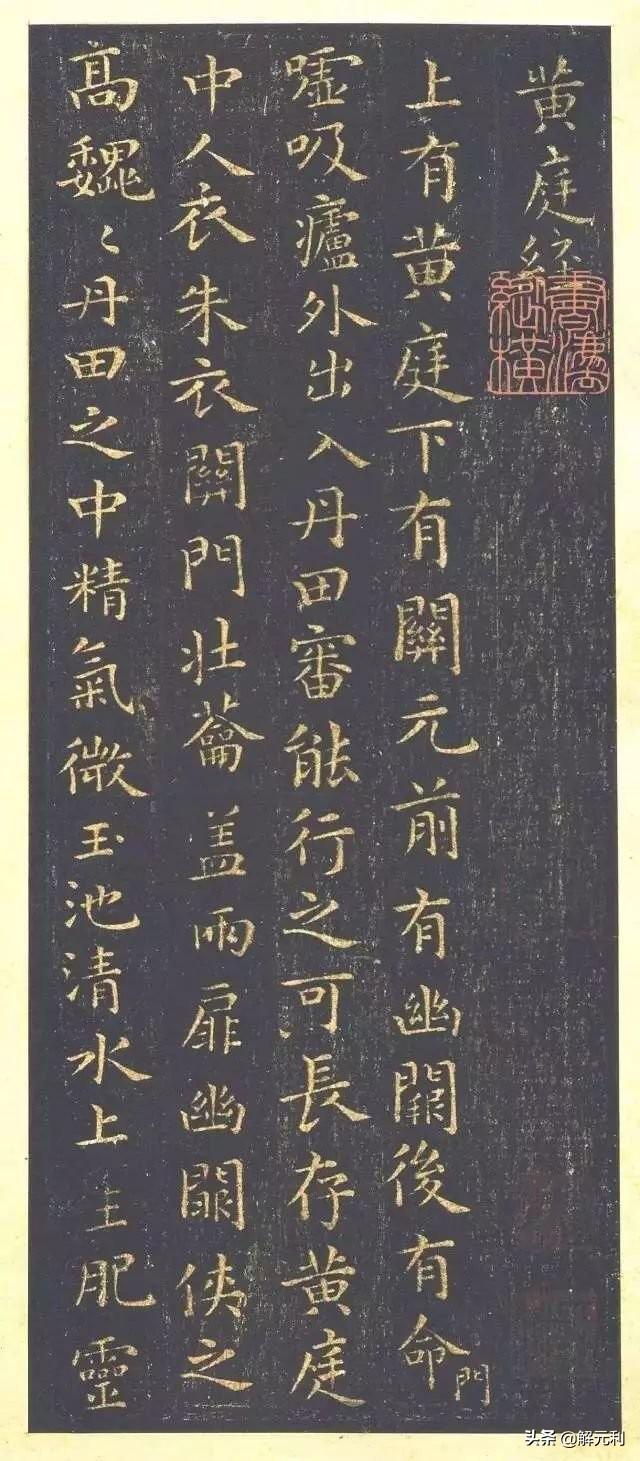 黃庭經
上有黃庭下有關元前有幽闕後有命門
噓吸廬外出入丹田審能行之可長存黃庭
中人衣朱衣關門壯蘥盖兩扉幽闕俠之
高魏〻丹田之中精氣微玉池清水上生肥靈
头条 @解元利